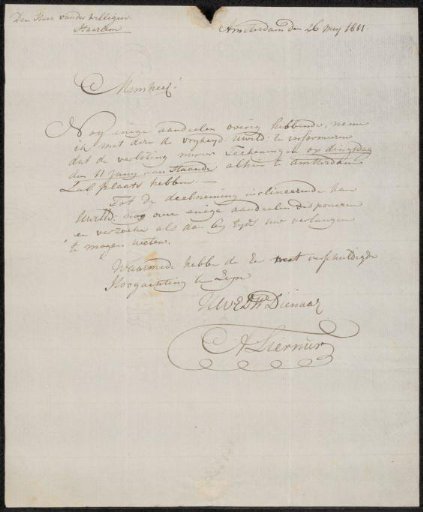 Den Heer van der Willigen
Haarlem
Amsterdam den 26 Mey 1811
Mijnheer!
Nog enige aandeelen overig hebbende, neeme
ik met dese de vryheyd UwEd. te informeeren
dat de verloting myner Teekeningen op dingsdag
den 11 Juny aanstaande alhier te Amsterdam
Zal plaats hebben. —
Tot de deelneeming inclineerende kan
UwEd. nog over enige aandeelen disponeeren
en verzoeke als dan by tyds uw verlangen
te mogen weten.
Waarmede hebbe de Eer met verschuldigde
Hoogachting te Zyn
UWEDW Dienaar
A Liernur